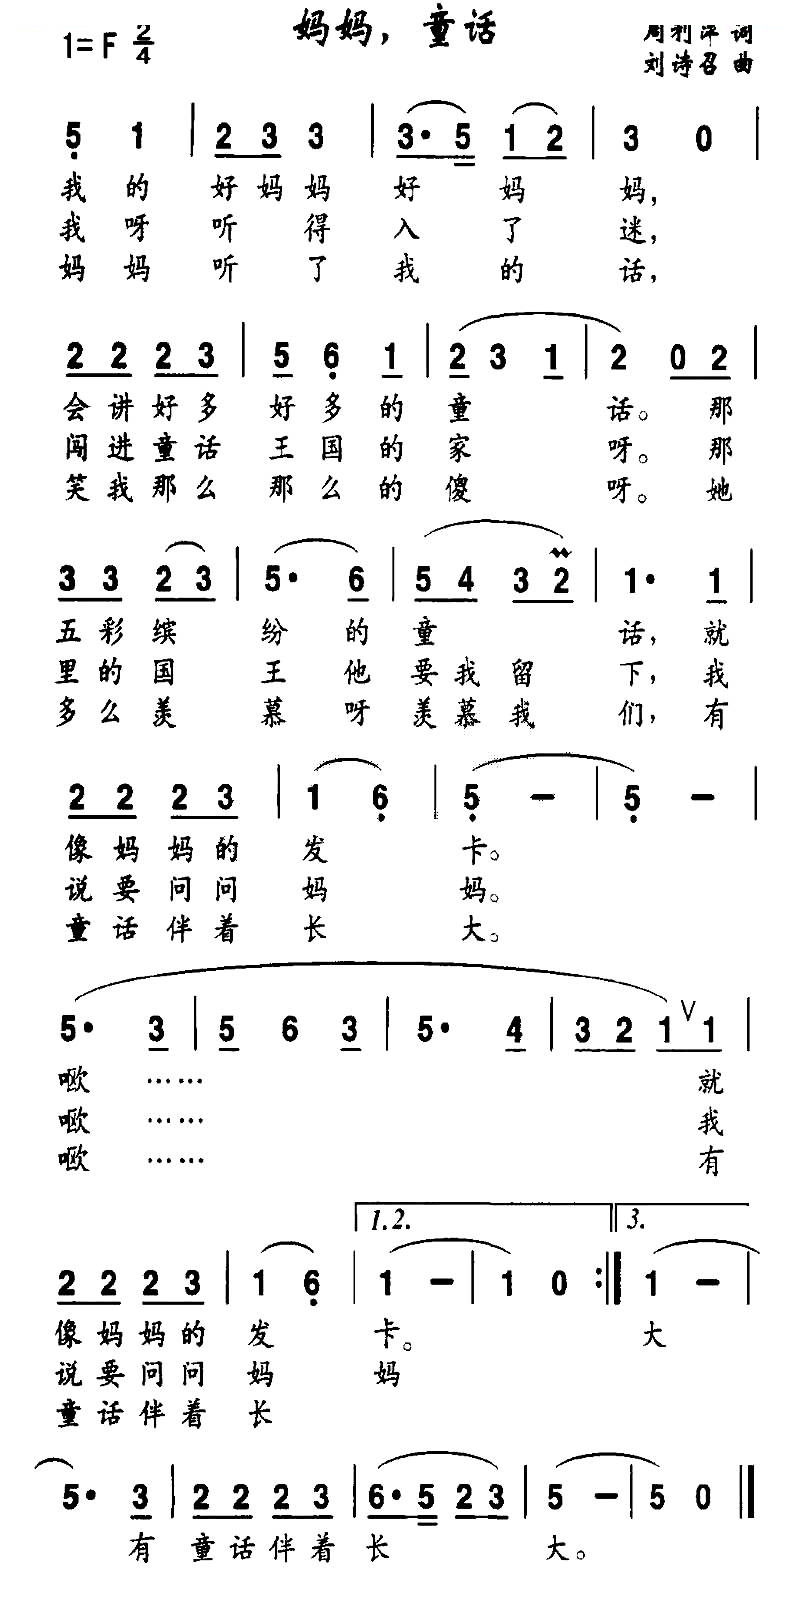 妈妈，童话
1=F 2/4
周利平 词
刘诗召 曲
5 1 | 2 3 3 | 3· 5 1 2 | 3 0 |
我的好妈妈好妈妈，
我呀听得入了迷，
妈妈听了我的话，
2 2 2 3 | 5 6 1 | 2 3 1 | 2 0 2 |
会讲好多好多的童话。那
闯进童话王国的家呀。那
笑我那么那么的傻呀。她
3 3 2 3 | 5· 6 | 5 4 3 2 | 1· 1 |
五彩缤纷的童话，就
里的国王他要我留下，我
多么羡慕呀羡慕我们，有
2 2 2 3 | 1 6 | 5 - | 5 - |
像妈妈的发卡。
说要问问妈妈。
童话伴着长大。
5· 3 | 5 6 3 | 5· 4 | 3 2 1 ∨ 1 |
噷 …… 就
噷 …… 我
噷 …… 有
1.2. 3.
2 2 2 3 | 1 6 | 1 - | 1 0 :| 1 - |
像妈妈的发卡。大
说要问问妈妈
童话伴着长
5· 3 | 2 2 2 3 | 6· 5 2 3 | 5 - | 5 0 ‖
有童话伴着长大。